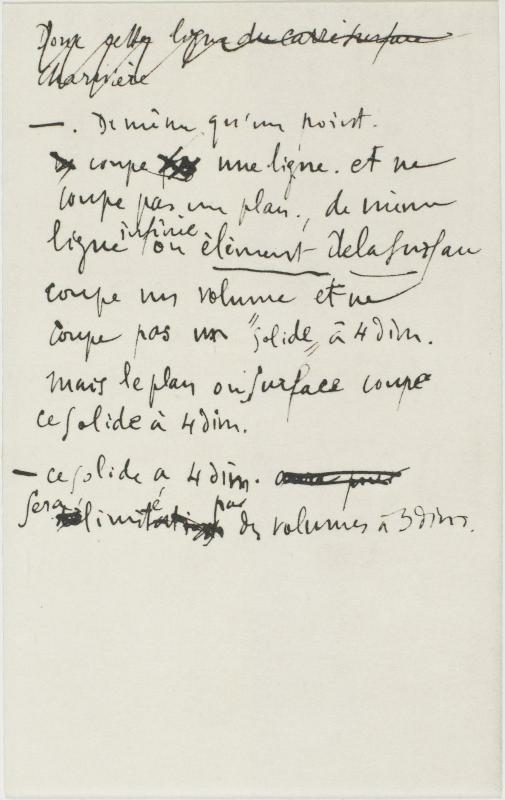 Donc cette ligne du carré surface
charnière
— . De même qu'un point.
coupe une ligne. et ne
coupe pas un plan., de même
ligne infinie ou élément de la surface
coupe un volume et ne
coupe pas un "solide" à 4 dim.
mais le plan ou surface coupe
ce solide à 4 dim.
— ce solide a 4 dim.
sera limité par des volumes à 3 dims.